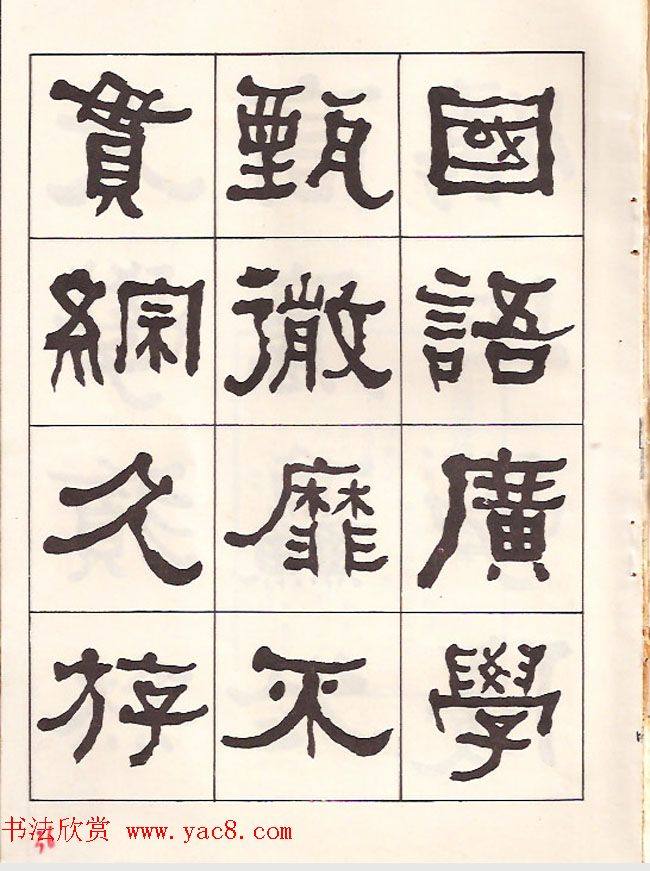 國語廣學
甄微靡不
貫綜久斿
书法欣赏 www.yac8.com